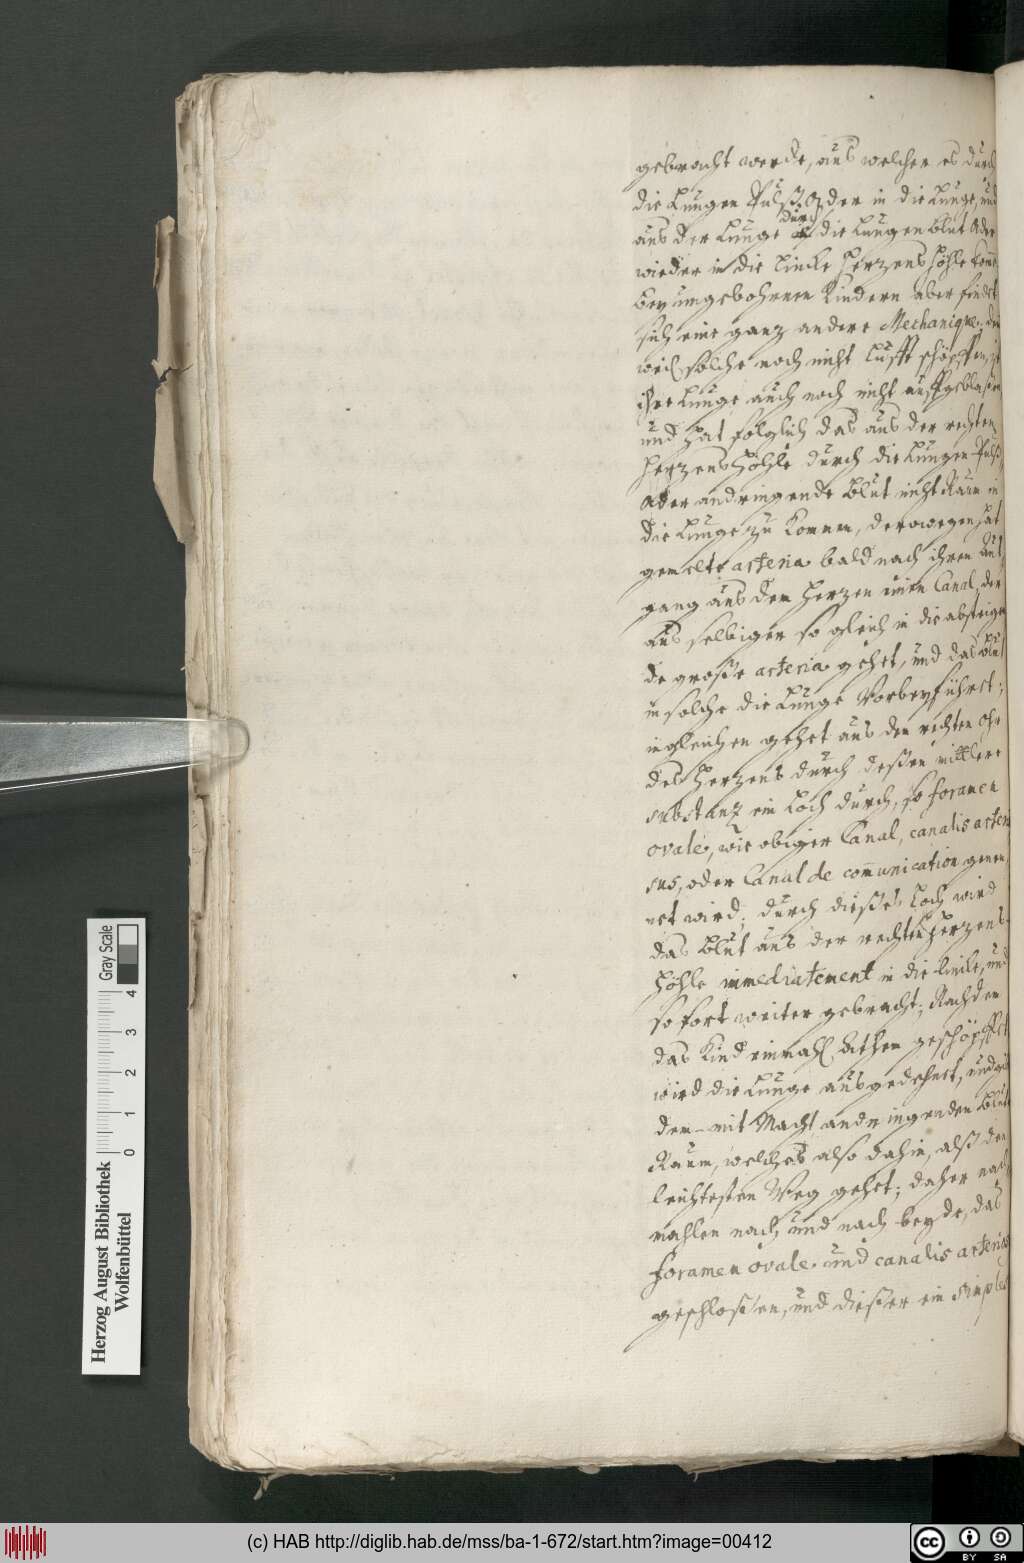 gebracht werde, aus welcher es durch
die Lungen Pulß Ader in die Lunge, und
aus der Lunge durch die Lungen blut Ader
wieder in die lincke Herzens Höhle komt.
bey ungebohrnen Kindern aber findet
sich eine ganz andere Mechanique; den
weil solche noch nicht Lufft schöpffen, ist
ihre Lunge auch noch nicht auffgeblaßen
und hat folglich das aus der rechten
Herzens Höhle durch die Lungen-Pulß
Ader andringende blut nicht Raum in
die Lunge zu kommen, derowegen hat
gemelte arteria bald nach ihren Auß
gang aus dem Herzen einen Canal, der
aus selbiger so gleich in die absteigen
de große arteria gehet, und das blut
in solche die Lunge vorbeyführet;
ingleichen gehet aus den rechten Ohr
des Herzens durch deßen mittlere
substanz ein Loch durch, so foramen
ovale, wie obiger Canal, canalis arterio
sus, oder Canal de com̅unication genen
net wird; durch dießes Loch wird
das blut aus der rechten Herzens-
Höhle immediatement in die lincke, und
so fort weiter gebracht; Nachdem
das Kind einmahl Athem geschöpffet
wird die Lunge ausgedehnet, und giebt
dem mit Macht andringenden blut
Raum, welches also dahin, alß den
leichtesten Weg gehet; daher nach
mahlen nach und nach beyde, das
foramen ovale und canalis arteriosus
geschloßen, und dießer ein simples
Herzog August Bibliothek
Wolfenbüttel
0 1 2 3 4
Gray Scale
(c) HAB http://diglib.hab.de/mss/ba-1-672/start.htm?image=00412
cc BY SA